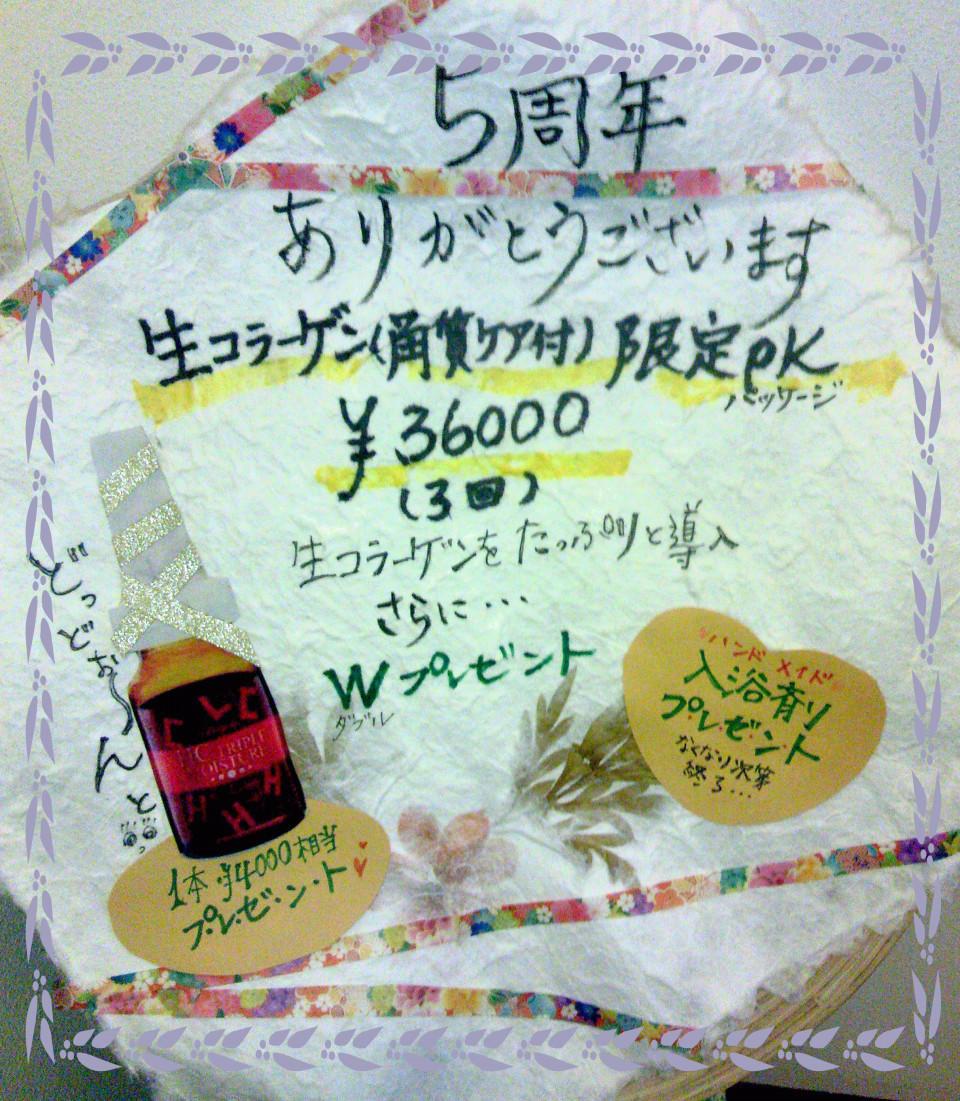 5周年
ありがとうございます
生コラーゲン(角質ケア付)限定PK
パッケージ
¥36000
(3回)
生コラーゲンをたっぷりと導入
さらに・・・
Wプレゼント
ダブル
どっどぉ〜んと
TRIPLE
MOISTURE
1本¥4000相当
プ・レ・ゼ・ン・ト
ハンドメイド
入浴剤
プ・レ・ゼ・ント
なくなり次第
終了・・・